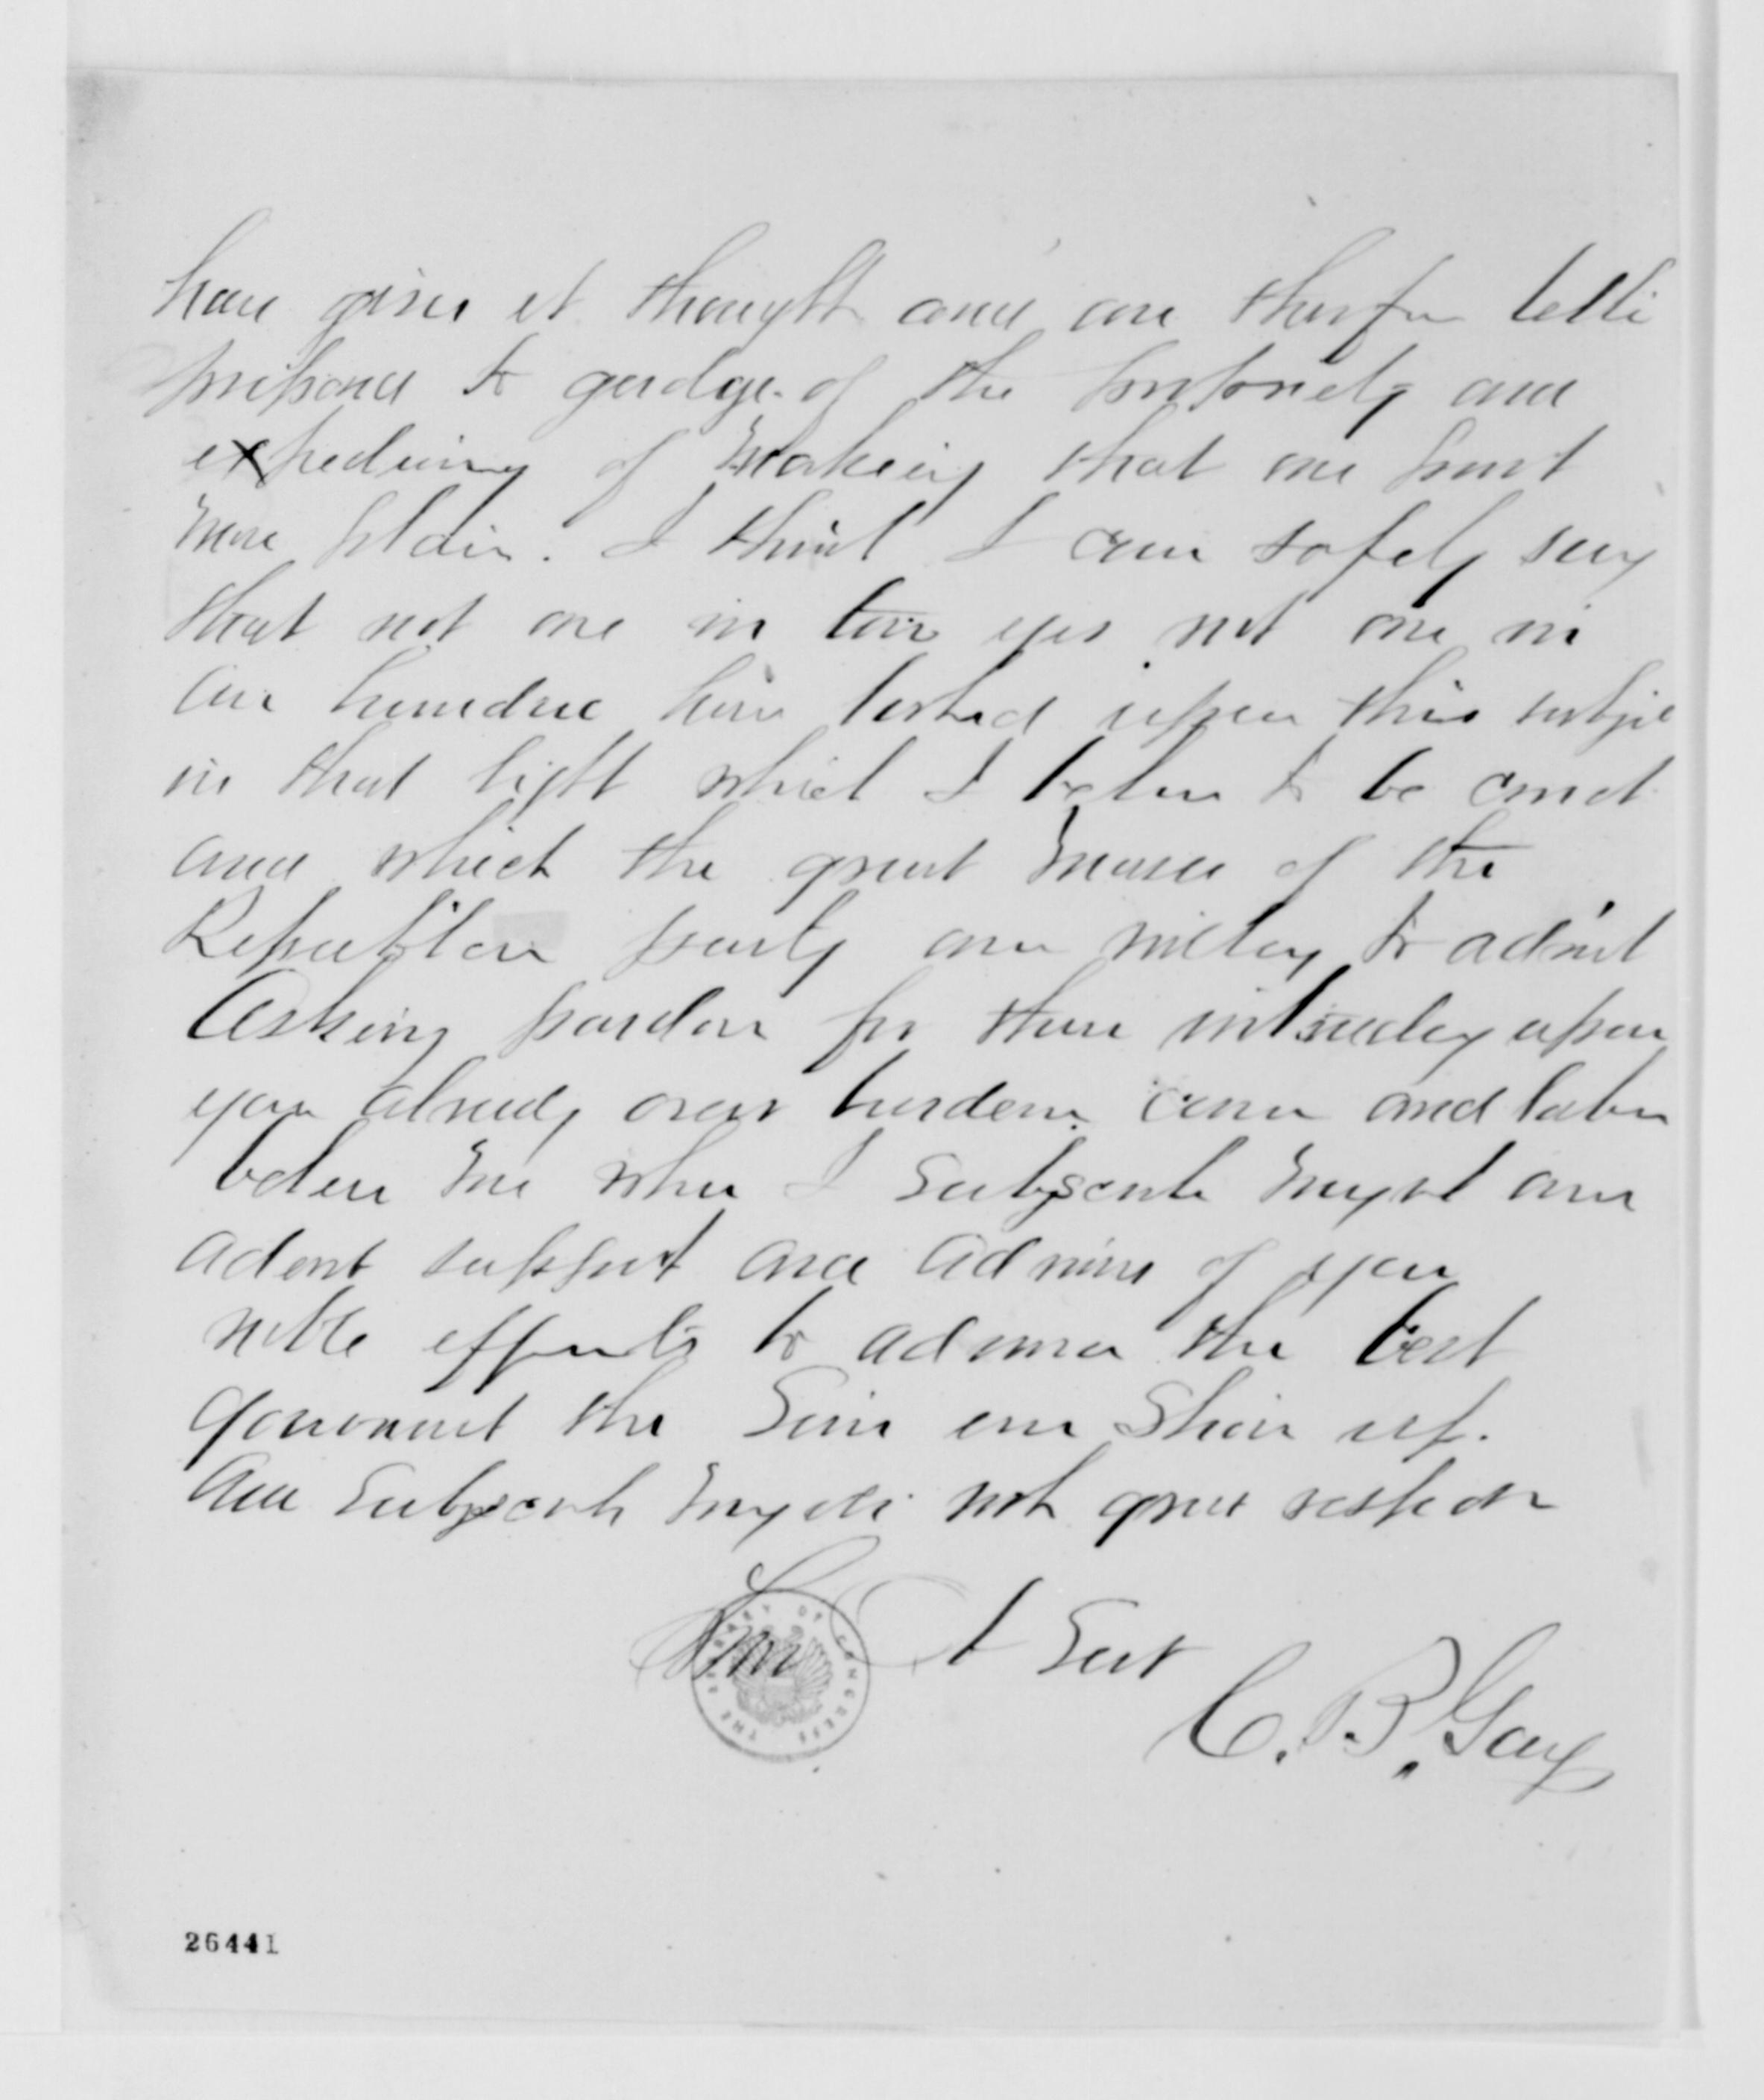 have given it thought and are therfor bette
prepared to gudge of the propriety and
expediency of making that one point
more plain. I think I can safely say
that not one in ten yes not one in
an hundred have looked upon this subject
in that light which I beleve to be correct
and which the great mass of the
Republican party are willing to admit
Asking pardon for thus intruding upon
your already over burdened cares and labor
beleve me when I subscribe myself an
adent support and admirer of your
noble efforts to advance the best
government the Sun ever Shone upon.
And subscribe myself with great respect
Your Obt Sert
C. B. Gay
26441
THE LIBRARY OF CONGRESS